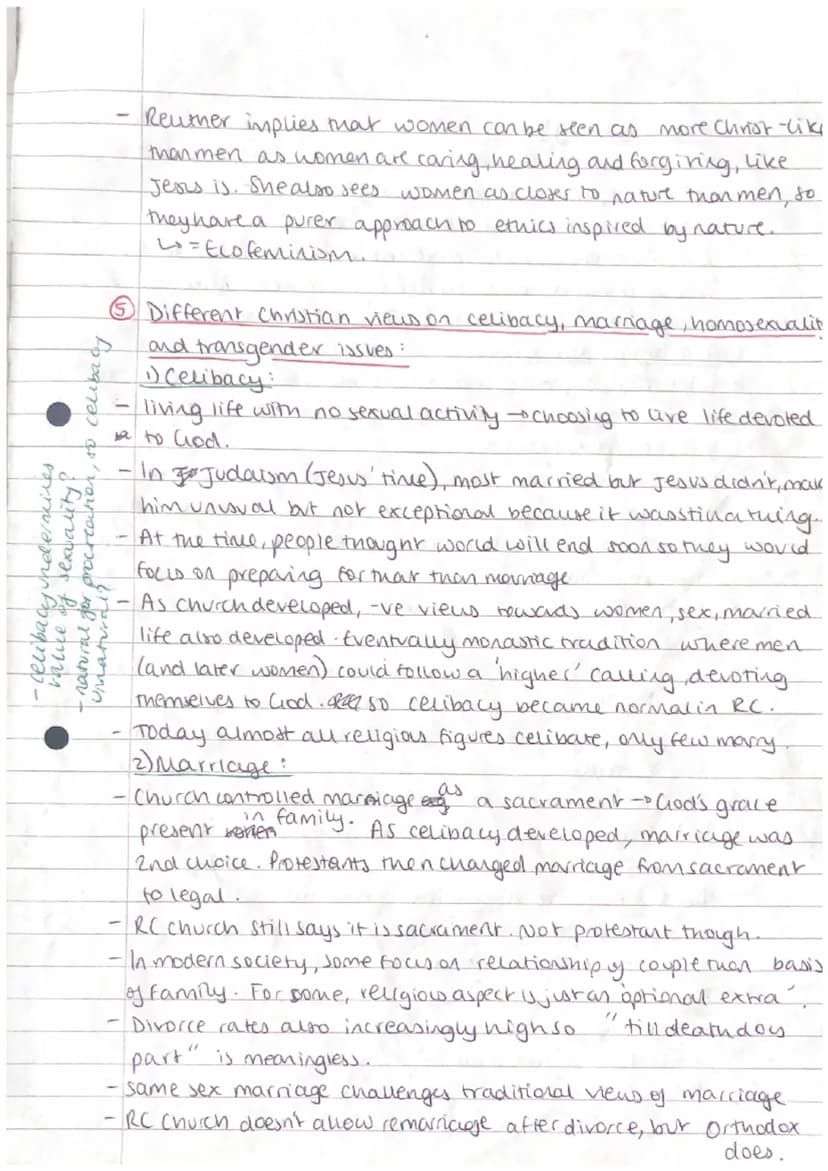 - Reurner implies that women can be seen as more Christ-lik
than men as women are caring, healing and forgiving, like
Jesus is. She also sees women as closer to nature than men, so
they have a purer approach to ethics inspired by nature.
↳ = Ecofeminism.
⑤ Different Christian views on celibacy, marriage, homosexualit
and transgender issues:
1) Celibacy:
- living life with no sexual activity → choosing to live life devoted
to God.
- In Judaism (Jesus' time), most married but Jesus didn't, mak
him unusual but not exceptional because it was still a thing.
- At the time, people thought world will end soon so they would
focus on preparing for that than marriage
- As church developed, -ve views towards women, sex, married
life also developed. Eventually monastic tradition where men
(and later women) could follow a 'higher' calling, devoting
themselves to God. so celibacy became normal in RC.
- Today almost all religious figures celibate, only few marry.
2) Marriage:
- Church controlled marriage as a sacrament → God's grace
present in family. As celibacy developed, marriage was
2nd choice. Protestants then changed marriage from sacrament
to legal.
- RC church still says it is sacrament. Not protestant though.
- In modern society, some focus on relationship of couple than basis
of family. For some, religious aspect is just an 'optional extra'.
- Divorce rates also increasingly high so "till death dos
part" is meaningless.
- Same sex marriage challenges traditional views of marriage
- RC Church doesn't allow remarriage after divorce, but Orthodox
does.
- celibacy undermines
value of sexuality?
- natural for procreation, so celibacy
unnatural?